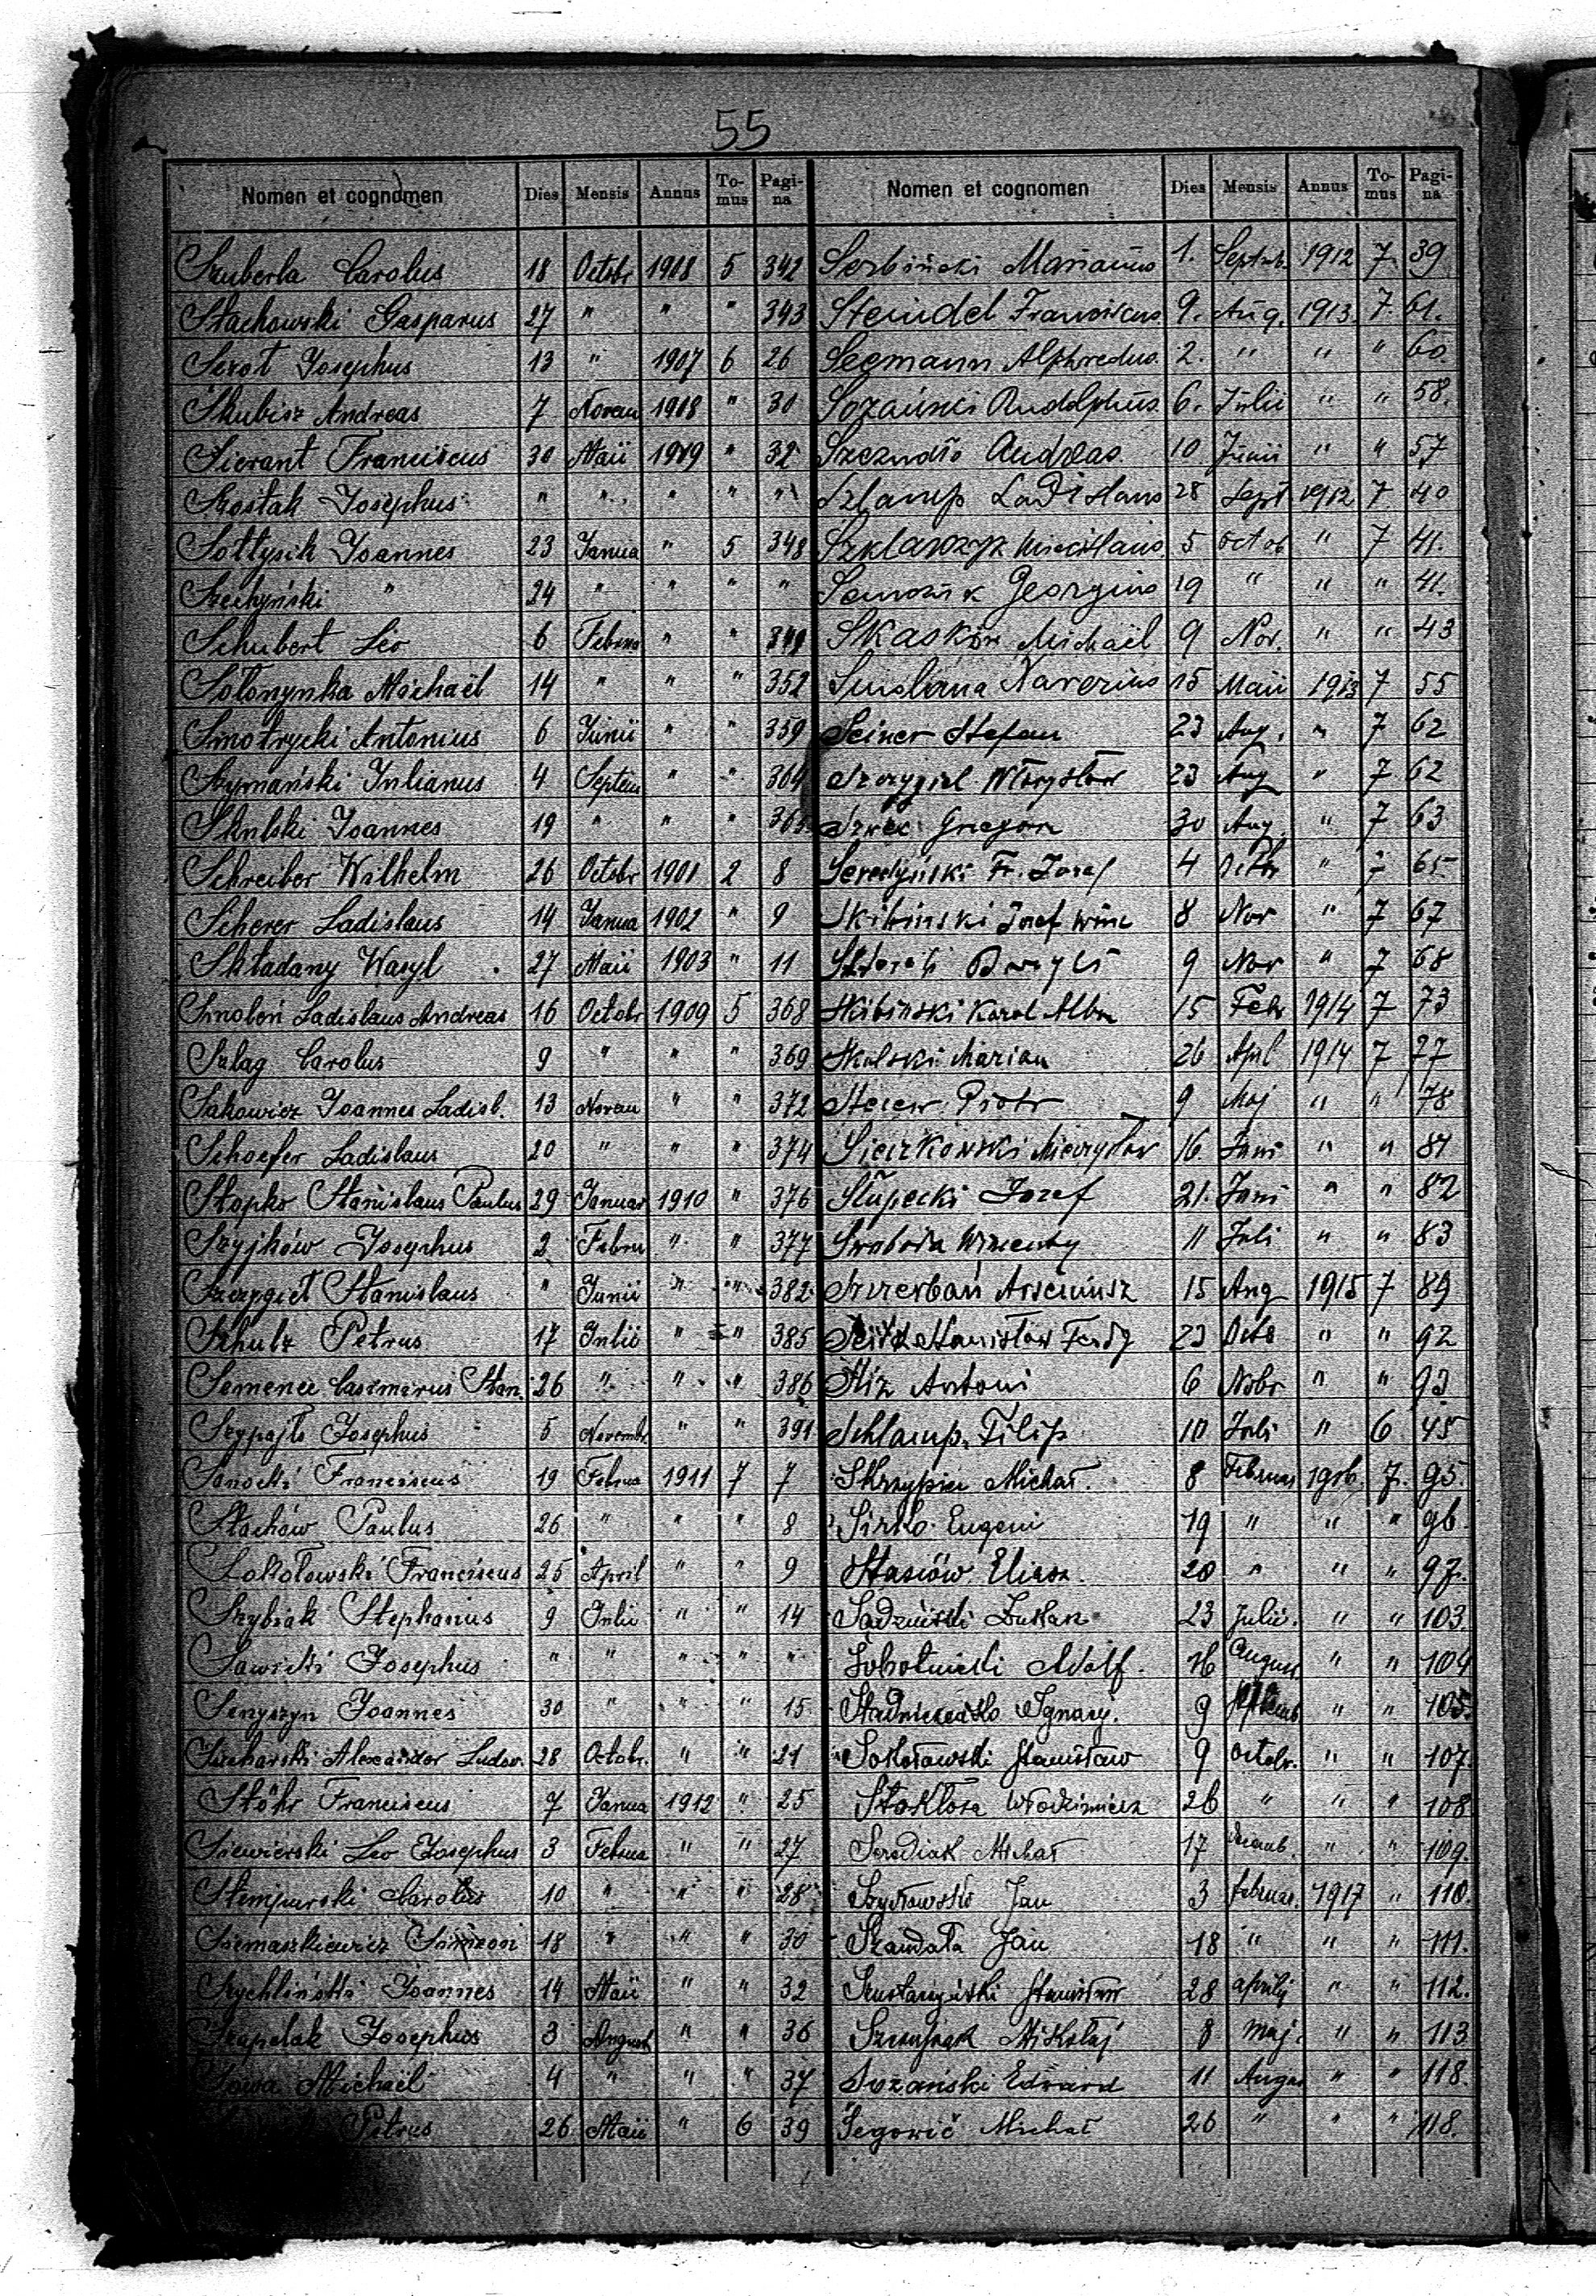 55
Nomen et cognomen Dies Mensis Annus To-mus Pagi-na
Szuberla Carolus 18 Octobr 1908 5 342
Stachowski Gasparus 27 " " " 343
Szot Josephus 13 " 1907 6 26
Skubisz Andreas 7 Novem 1908 " 30
Sierant Franciscus 30 Maii 1909 " 32
Szostak Josephus " " " " "
Sołtysik Joannes 23 Janua " 5 348
Szechyński " 24 " " " "
Schubert Leo 6 Febru " " 349
Sołonynka Michaël 14 " " " 352
Smotrycki Antonius 6 Junii " " 359
Szymański Julianus 4 Septem " " 364
Skulski Joannes 19 " " " 365
Schreiber Wilhelm 26 Octobr 1901 2 8
Scherer Ladislaus 14 Janua 1902 " 9
Składany Wasyl 27 Maii 1903 " 11
Smoleń Ladislaus Andreas 16 Octobr 1909 5 368
Szlag Carolus 9 " " " 369
Sakowicz Joannes Ladisl. 13 Novem " " 372
Schoefer Ladislaus 20 " " " 374
Stopko Stanislaus Paulus 29 Januar 1910 " 376
Szyjków Josephus 2 Febru " " 377
Szczygieł Stanislaus " Junii " " 382
Schulz Petrus 17 Julii " " 385
Semenec Casimirus Stan. 26 " " " 386
Szypajło Josephus 5 Novembr. " " 391
Sanocki Franciscus 19 Februa 1911 7 7
Stachów Paulus 26 " " " 8
Sokołowski Franciscus 25 April " " 9
Szybiak Stephanus 9 Julii " " 14
Sawicki Josephus " " " " "
Senyszyn Joannes 30 " " " 15
Sucharski Alexander Ludov. 28 Octobr. " " 21
Stöhr Franciscus 7 Janua 1912 " 25
Siewierski Leo Josephus 3 Februa " " 27
Stempurski Carolus 10 " " " 28
Siemaszkiewicz Simeon 18 " " " 30
Rychliński Joannes 14 Maii " " 32
Szapelak Josephus 3 August " " 36
Sowa Michaël 4 " " " 37
Petrus 26 Maii " 6 39
Nomen et cognomen Dies Mensis Annus To-mus Pagi-na
Serbiński Marianus 1. Septmb. 1912 7. 39
Steindel Franciscus 9. Aug. 1913. 7. 61.
Seemann Alphredus 2. " " " 60.
Sozański Rudolphus. 6. Julii " " 58.
Andreas 10 Junii " " 57
Szlamp Ladislaus 28 Sept 1912 7 40
Szklarczyk Miecislaus 5 octob " 7 41.
Georgius 19 " " " 41.
Skaskiw Michaël 9 Nov. " " 43
Xaverius 15 Maii 1913 7 55
Seiner Stefan 23 Aug. " 7 62
Szczygieł Włdysław 23 Aug " 7 62
Szwec Gregor 30 Aug. " 7 63
Seredyński Fr. Josef 4 Octbr " 7 65
Skibinski Josef Winc 8 Nov " 7 67
9 Nov " 7 68
Skibiński Karol Albin 15 Febr 1914 7 73
Skulski Marian 26 April 1914 7 77
Stecew Piotr 9 Maj " " 78
Sieczkowski Mieczysław 16. Juni " " 81
Słupecki Jozef 21. Juni " " 82
Swoboda Wincenty 11 Juli " " 83
Szczerbań Arseniusz 15 Aug 1915 7 89
Stanisław Ferdy 23 Octb " " 92
Antoni 6 Nobr " " 93
Schlamp Filip 10 Juli " 6 45
Skrzypiec Michał. 8 Februar 1916. 7. 95.
Sirko Eugeni 19 " " " 96.
Stasiów Eliasz. 20 " " " 97.
Sadziński Łukasz 23 Julii. " " 103.
Sobotnicki Adolf. 16 August " " 104
Stadniczenko Ignacy. 9 Septemb " " 105.
Sokołowski Stanisław 9 Octobr. " " 107.
Stokłosa Włodzimierz 26 " " " 108.
Serediak Michał 17 Decemb. " " 109.
Szydłowski Jan 3 Februar. 1917 " 110.
Szandała Jan 18 " " " 111.
Stanisław 28 Aprilij " " 112.
Szczuyrak Mikołaj 8 Maj. " " 113
Sozański Edward 11 Augus " " 118.
Segowič Michał 26 " " " 118.